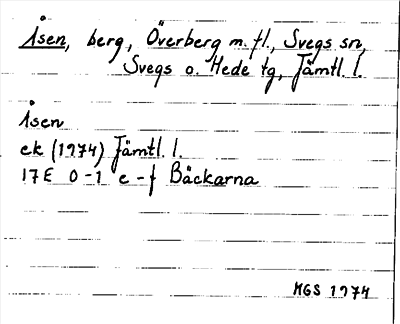 Åsen, berg, Överberg m.fl., Svegs sn,
Svegs o. Hede tg, Jämtl. l.
Åsen
ek (1974) Jämtl. l.
17E 0-1 e-f Bäckarna
MGS 1974